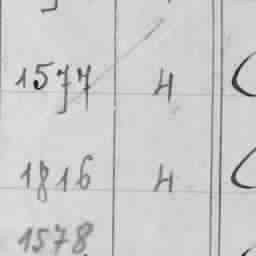 1577 4
1816 4
1578